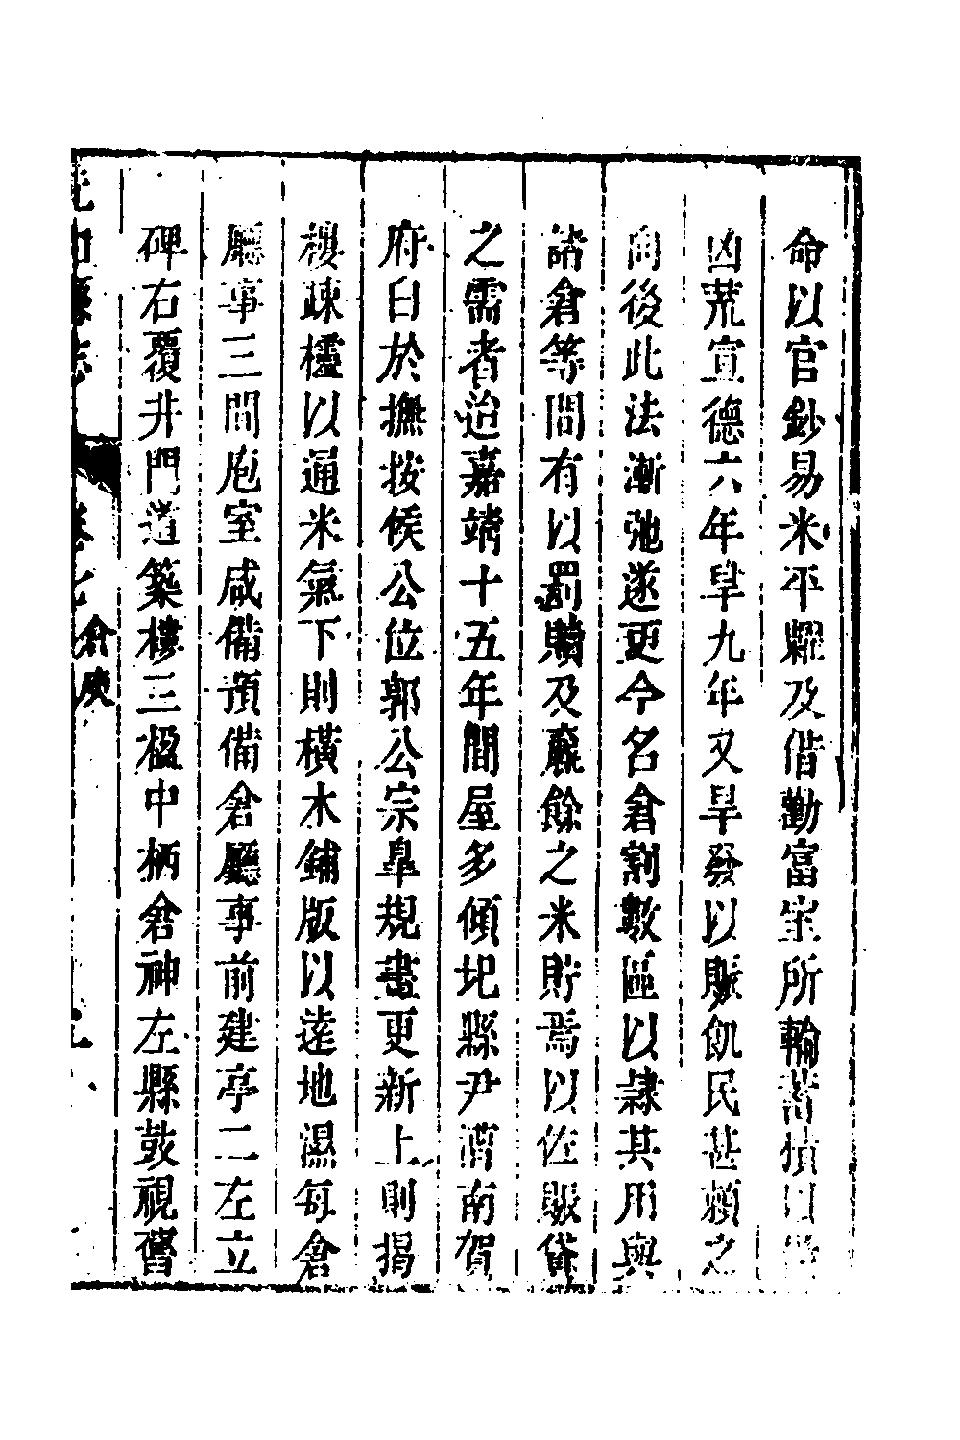 命以官鈔易米平糶及偕勸富室所輸蓄積以
凶荒宣德六年旱九年又旱發以賑飢民甚賴之
向後此法漸弛遂更今名倉割數區以隸其用與
諸倉等間有以罰贖及廒餘之米貯焉以佐賑貸
之需者迨嘉靖十五年間屋多傾圯縣尹濟南賀
府臼於撫按侯公位郭公宗皐規畫更新上則揭
櫻疎櫺以通米氣下則橫木鋪版以遠地濕每倉
廳事三間庖室咸備預備倉廳事前建亭二左立
碑右覆井門道築樓三楹中栖倉神左縣鼓視舊
倉庾